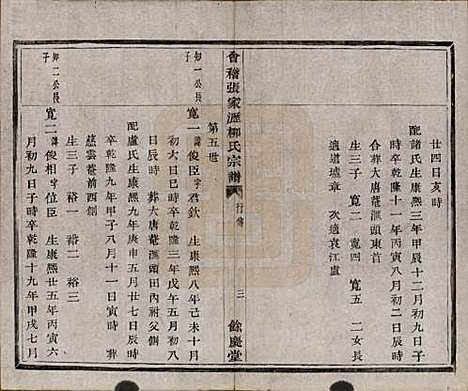 廿四日亥時
配諸氏生康熙三年甲辰十二月初九日子
時卒乾隆十一年丙寅八月初二日日時
合葬大唐菴滙頭東首
生三子 寬二 寬四 寬五 二女長
適道墟章 次適袁江盧
會稽張家瀝柳氏宗譜 行傳 三 餘慶堂
第五世
知一公長子
寬一諱俊臣字君欽 生康熙八年己未十月
初六日巳時卒乾隆三年戊午五月初八
日辰時 葬大唐菴滙頭田內祔父側
配盧氏生康熙九年庚申五月廿七日辰時
卒乾隆九年甲子八月十一日寅時 葬
慈雲菴前西側
生三子 裕一 裕二 裕三
知二公長子
寬二諱俊相字位臣 生康熙廿五年丙寅六
月初九日子時卒乾隆十九年甲戌七月